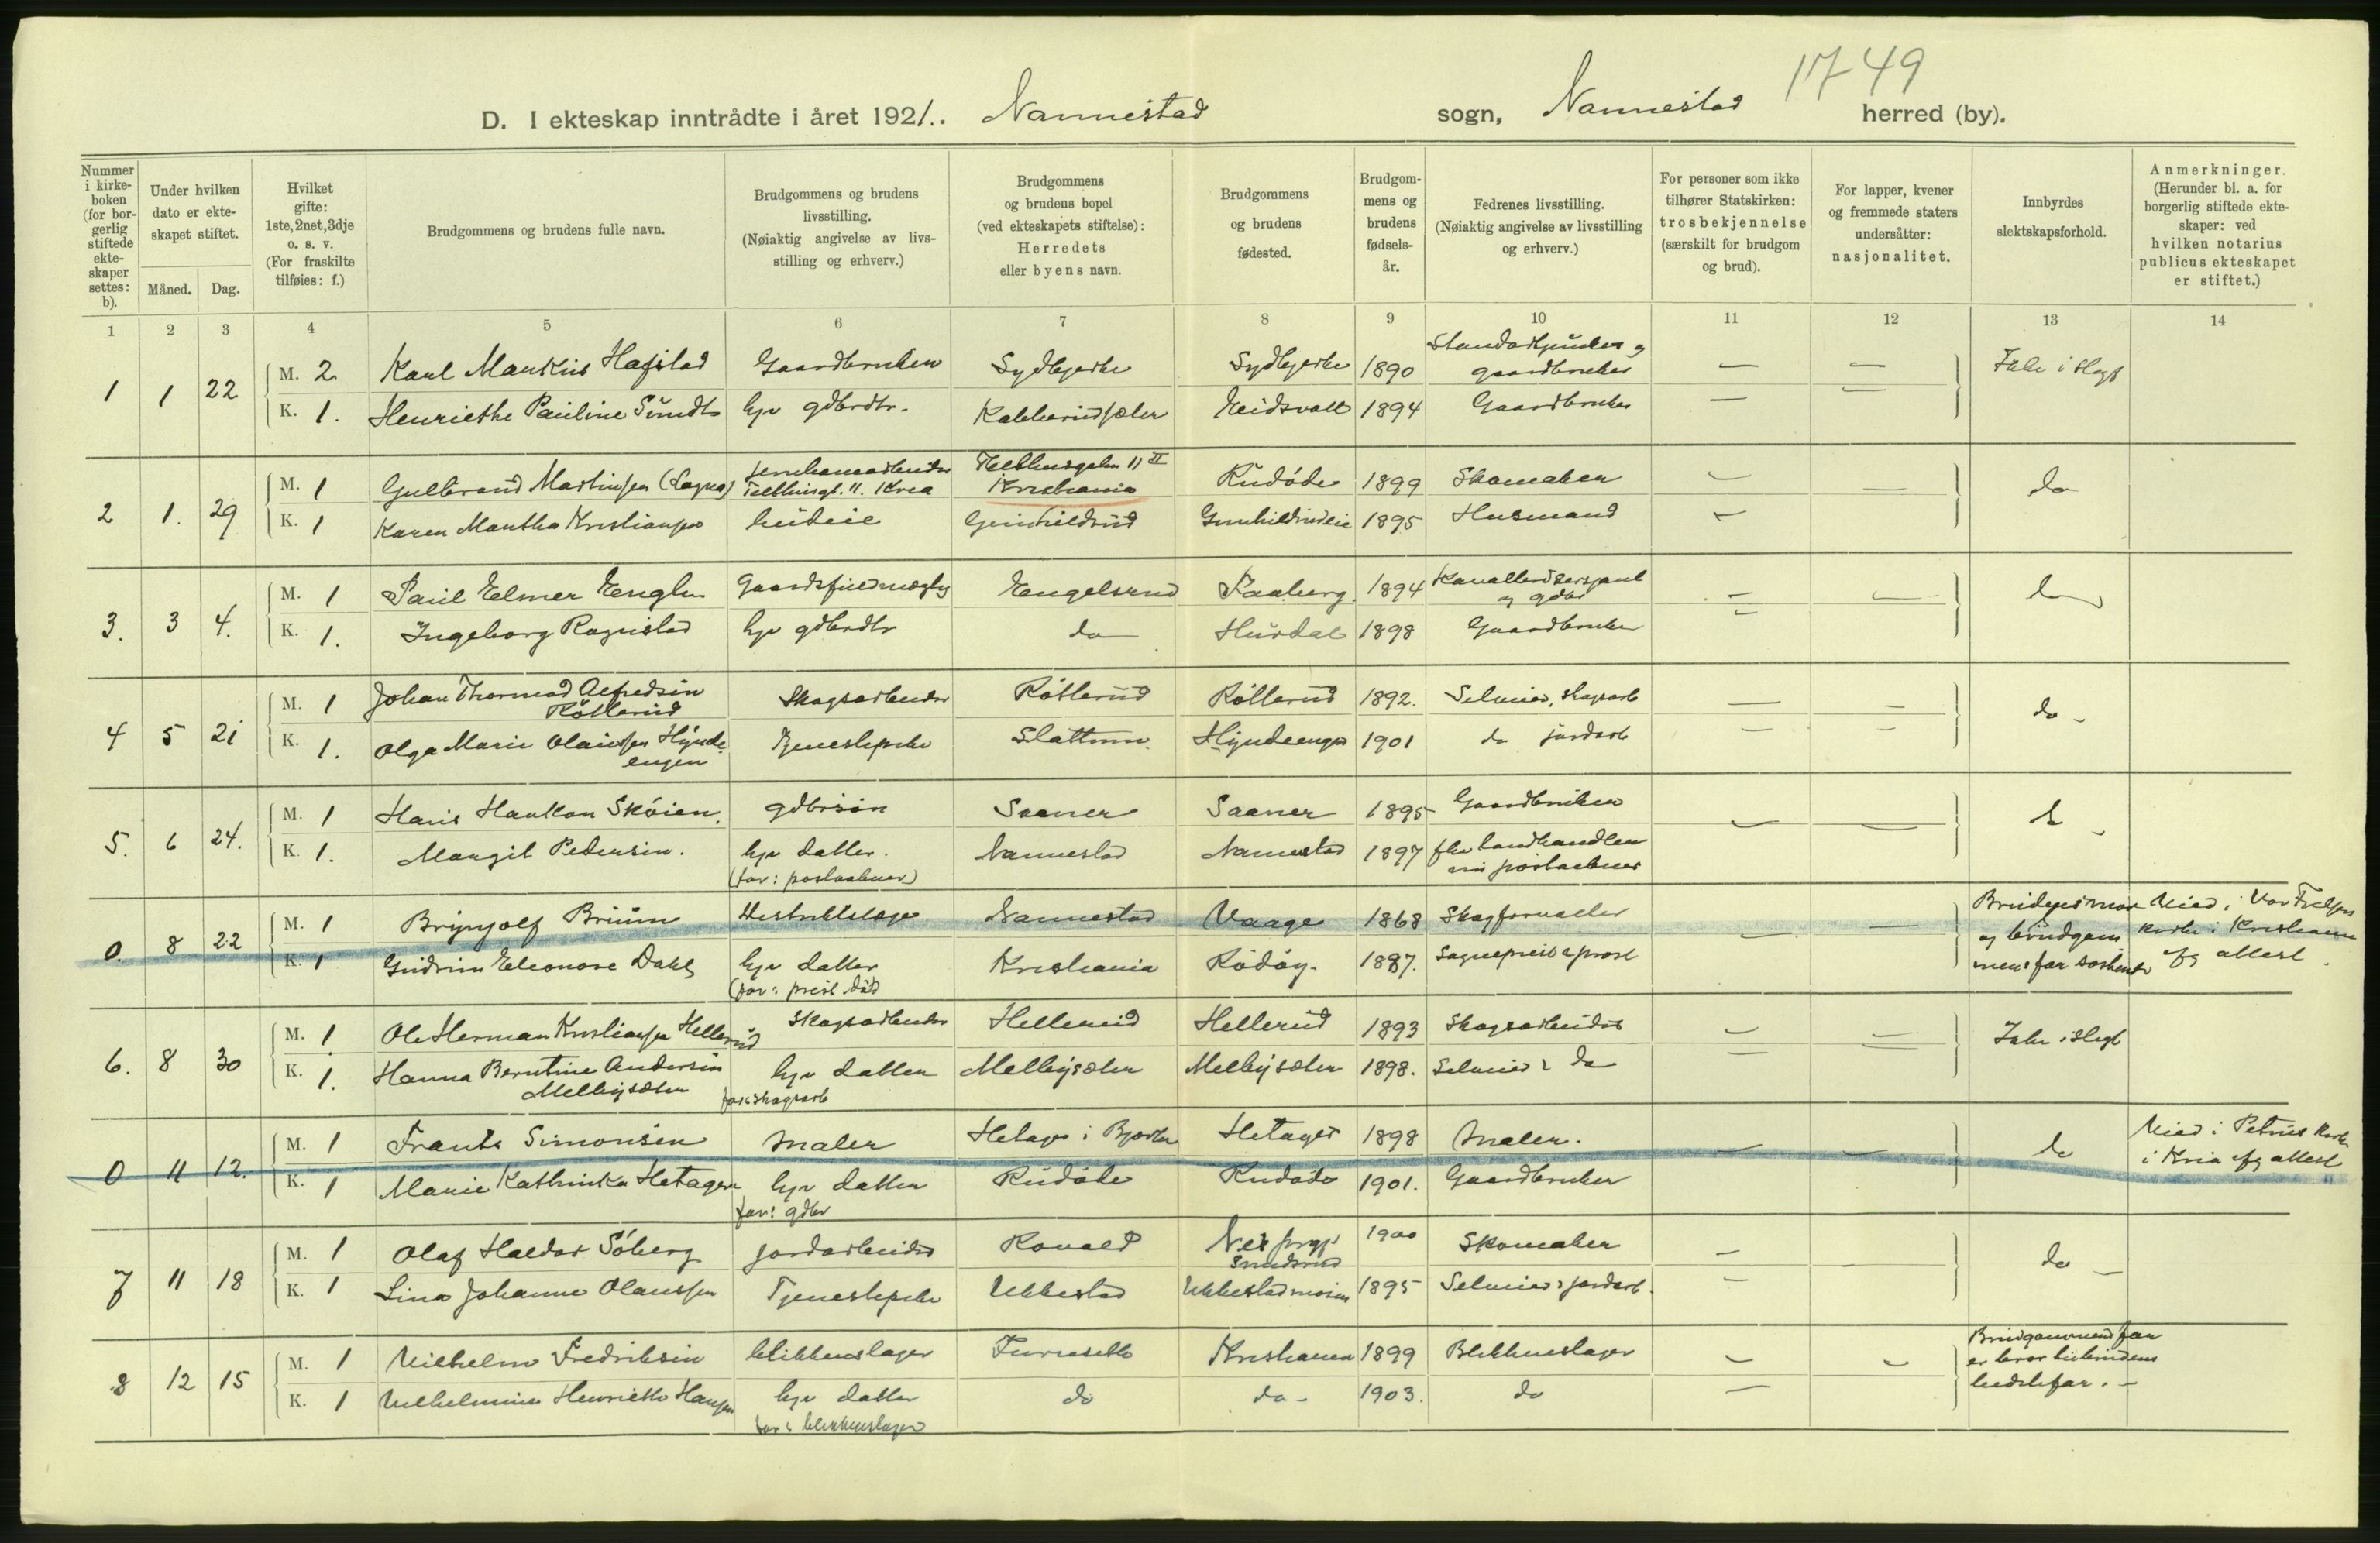 1749
D. I ekteskap inntrådte i året 1921. Nannestad sogn, Nannestad herred (by).
Nummer i kirke-boken (for bor-gerlig stiftede ekte-skaper settes: b).
Under hvilken dato er ekte-skapet stiftet.
Måned. Dag.
Hvilket gifte: 1ste, 2net, 3dje o. s. v. (For fraskilte tilføies: f.)
Brudgommens og brudens fulle navn.
Brudgommens og brudens livsstilling. (Nøiaktig angivelse av livs-stilling og erhverv.)
Brudgommens og brudens bopel (ved ekteskapets stiftelse): Herredets eller byens navn.
Brudgommens og brudens fødested.
Brudgom-mens og brudens fødsels-år.
Fedrenes livsstilling. (Nøiaktig angivelse av livsstilling og erhverv.)
For personer som ikke tilhører Statskirken: trosbekjennelse (særskilt for brudgom og brud).
For lapper, kvener og fremmede staters undersåtter: nasjonalitet.
Innbyrdes slektskapsforhold.
Anmerkninger. (Herunder bl. a. for borgerlig stiftede ekte-skaper: ved hvilken notarius publicus ekteskapet er stiftet.)
1 2 3 4 5 6 7 8 9 10 11 12 13 14
1 1 22 M. 2 Karl Markus Hafstad Gaardbruker 1890 gaardbruker — — Ikke i slegt
K. 1. Henriethe Pauline Sundt hjv gdbrdtr. Eidsvoll 1894 Gaardbruker — —
2 1. 29 M. 1 Gulbrand Martinsen Kristiania 1899 Skomaker — — do
K. 1 Karen Martha Kristiansen 1895 Husmand —
3. 3 4. M. 1 Paul Elmer Engelsrud Faaberg 1894 — —
K. 1. Ingeborg hjv gdbrdtr do Hurdal 1898 Gaardbruker —
4 5 21 M. 1 Johan Thormod Alfredsen Røtterud Skogsarbeider Røtterud Røtterud 1892. Selveier, skogsarb — — do -
K. 1. Olga Marie Olaussen Hynde-engen Tjenestepike Slattum Hyndeengen 1901 do jordarb — —
5. 6 24. M. 1 Hans Haakon Skøien. gdbrsøn Saaner Saaner 1895 Gaardbruker — —
K. 1. Margit Pedersen. hjv datter. (far: postaabner) Nannestad Nannestad 1897 landhandler postaabner
0. 8 22 M. 1 Brynjolf Bruun Distriktslæge Nannestad Vaage 1868 Skogforvalter — — Brudens mor og brudgommens far søskende Viet i Vor Frelsers kirke i Kristiania attest
K. 1 Gudrun Eleonore Dahl hjv datter (far: prest Dahl Kristiania Rødøy. 1887. Sogneprest & prost
6. 8 30 M. 1 Ole Herman Kristiansen Hellerud Skogsarbeider Hellerud Hellerud 1893 Skogsarbeider — — Ikke i slegt
K. 1. Hanna Berntine Andersen Melbysæter hjv datter far: skogsarb Melbysæter Melbysæter 1898. Selveier & do — —
0 11 12. M. 1 Frants Simonsen Maler Hetager 1898 Maler. — — do Viet i Petrus kirke i Kria attest
K. 1 Marie Kathinka Hetager hjv datter far: gdbr 1901. Gaardbruker
7 11 18 M. 1 Olaf Haldor Søberg jordarbeider 1900 Skomaker — — do —
K. 1 Lina Johanne Olaussen Tjenestepike Ukkestad Ukkestadmoen 1895 Selveier & jordarb. —
8 12 15 M. 1 Vilhelm Fredriksen blikkenslager Kristiania 1899 Blikkenslager — — Brudgommens far er bror til brudens bedstefar. —
K. 1 Vilhelmine Henriette Hansen hjv datter far: blikkenslager do do - 1903. do —